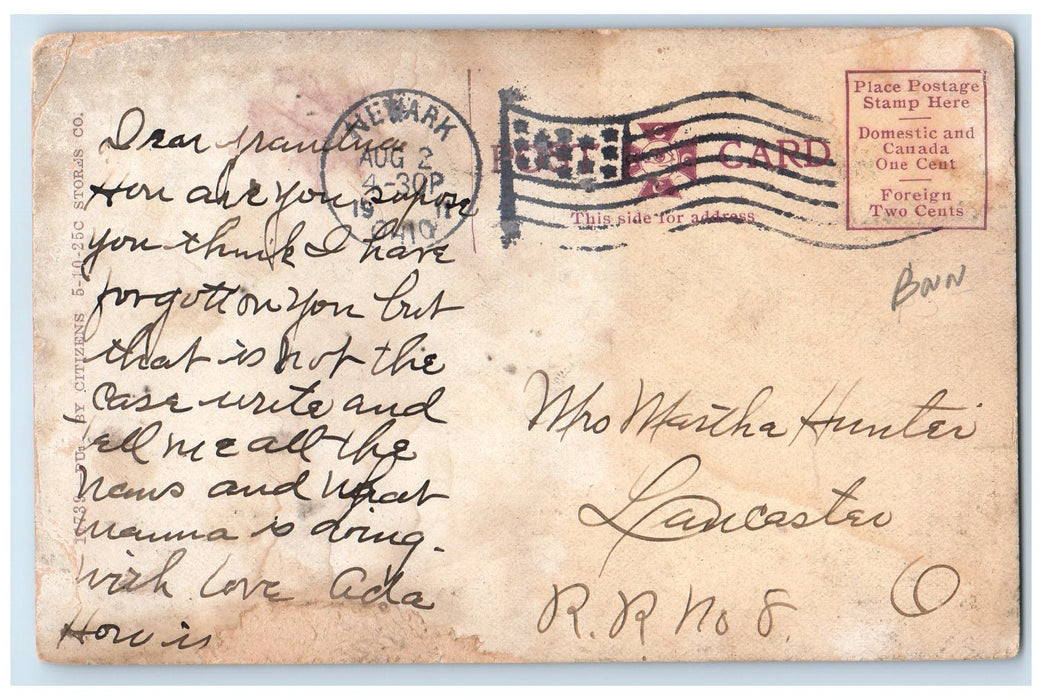 Dear grandma
How are you supose
you think I have
forgotton you but
that is not the
case write and
tell me all the
news and what
mamma is doing.
with love Ada
How is
BY CITIZENS 5-10-25C STORES CO.
NEWARK
AUG 2
4-30P
1911
OHIO
POST CARD
This side for address
Place Postage
Stamp Here
Domestic and
Canada
One Cent
Foreign
Two Cents
Mrs Martha Hunter
Lancaster
R. R No 8. O